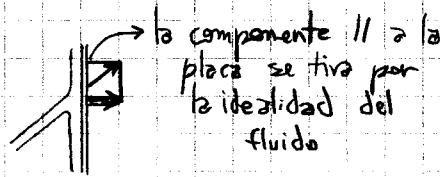 la componente // a la
placa se tira por
la idealidad del
fluido